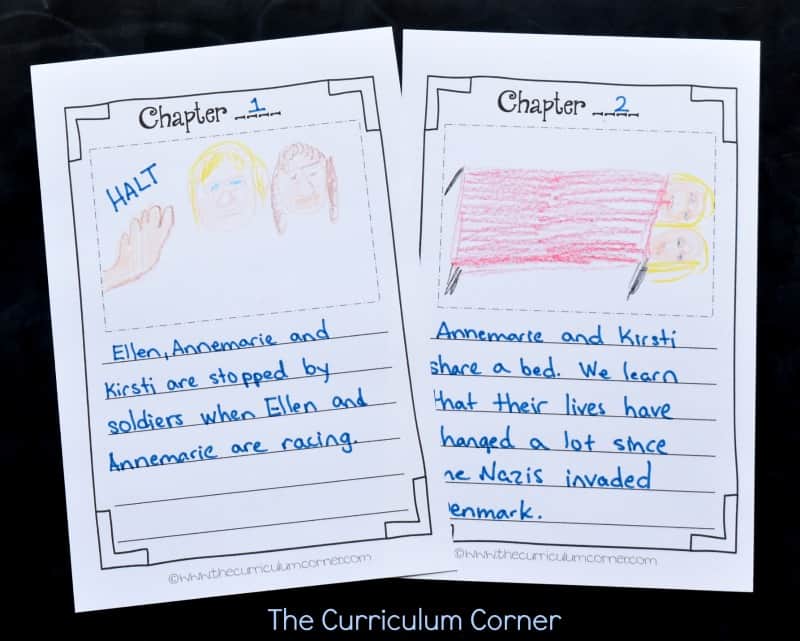 Chapter 1
HALT
Ellen, Annemarie and
Kirsti are stopped by
soldiers when Ellen and
Annemarie are racing.
©www.thecurriculumcorner.com
Chapter 2
Annemarie and Kirsti
share a bed. We learn
that their lives have
hanged a lot since
Nazis invaded
enmark.
©www.thecurriculumcorner.com
The Curriculum Corner